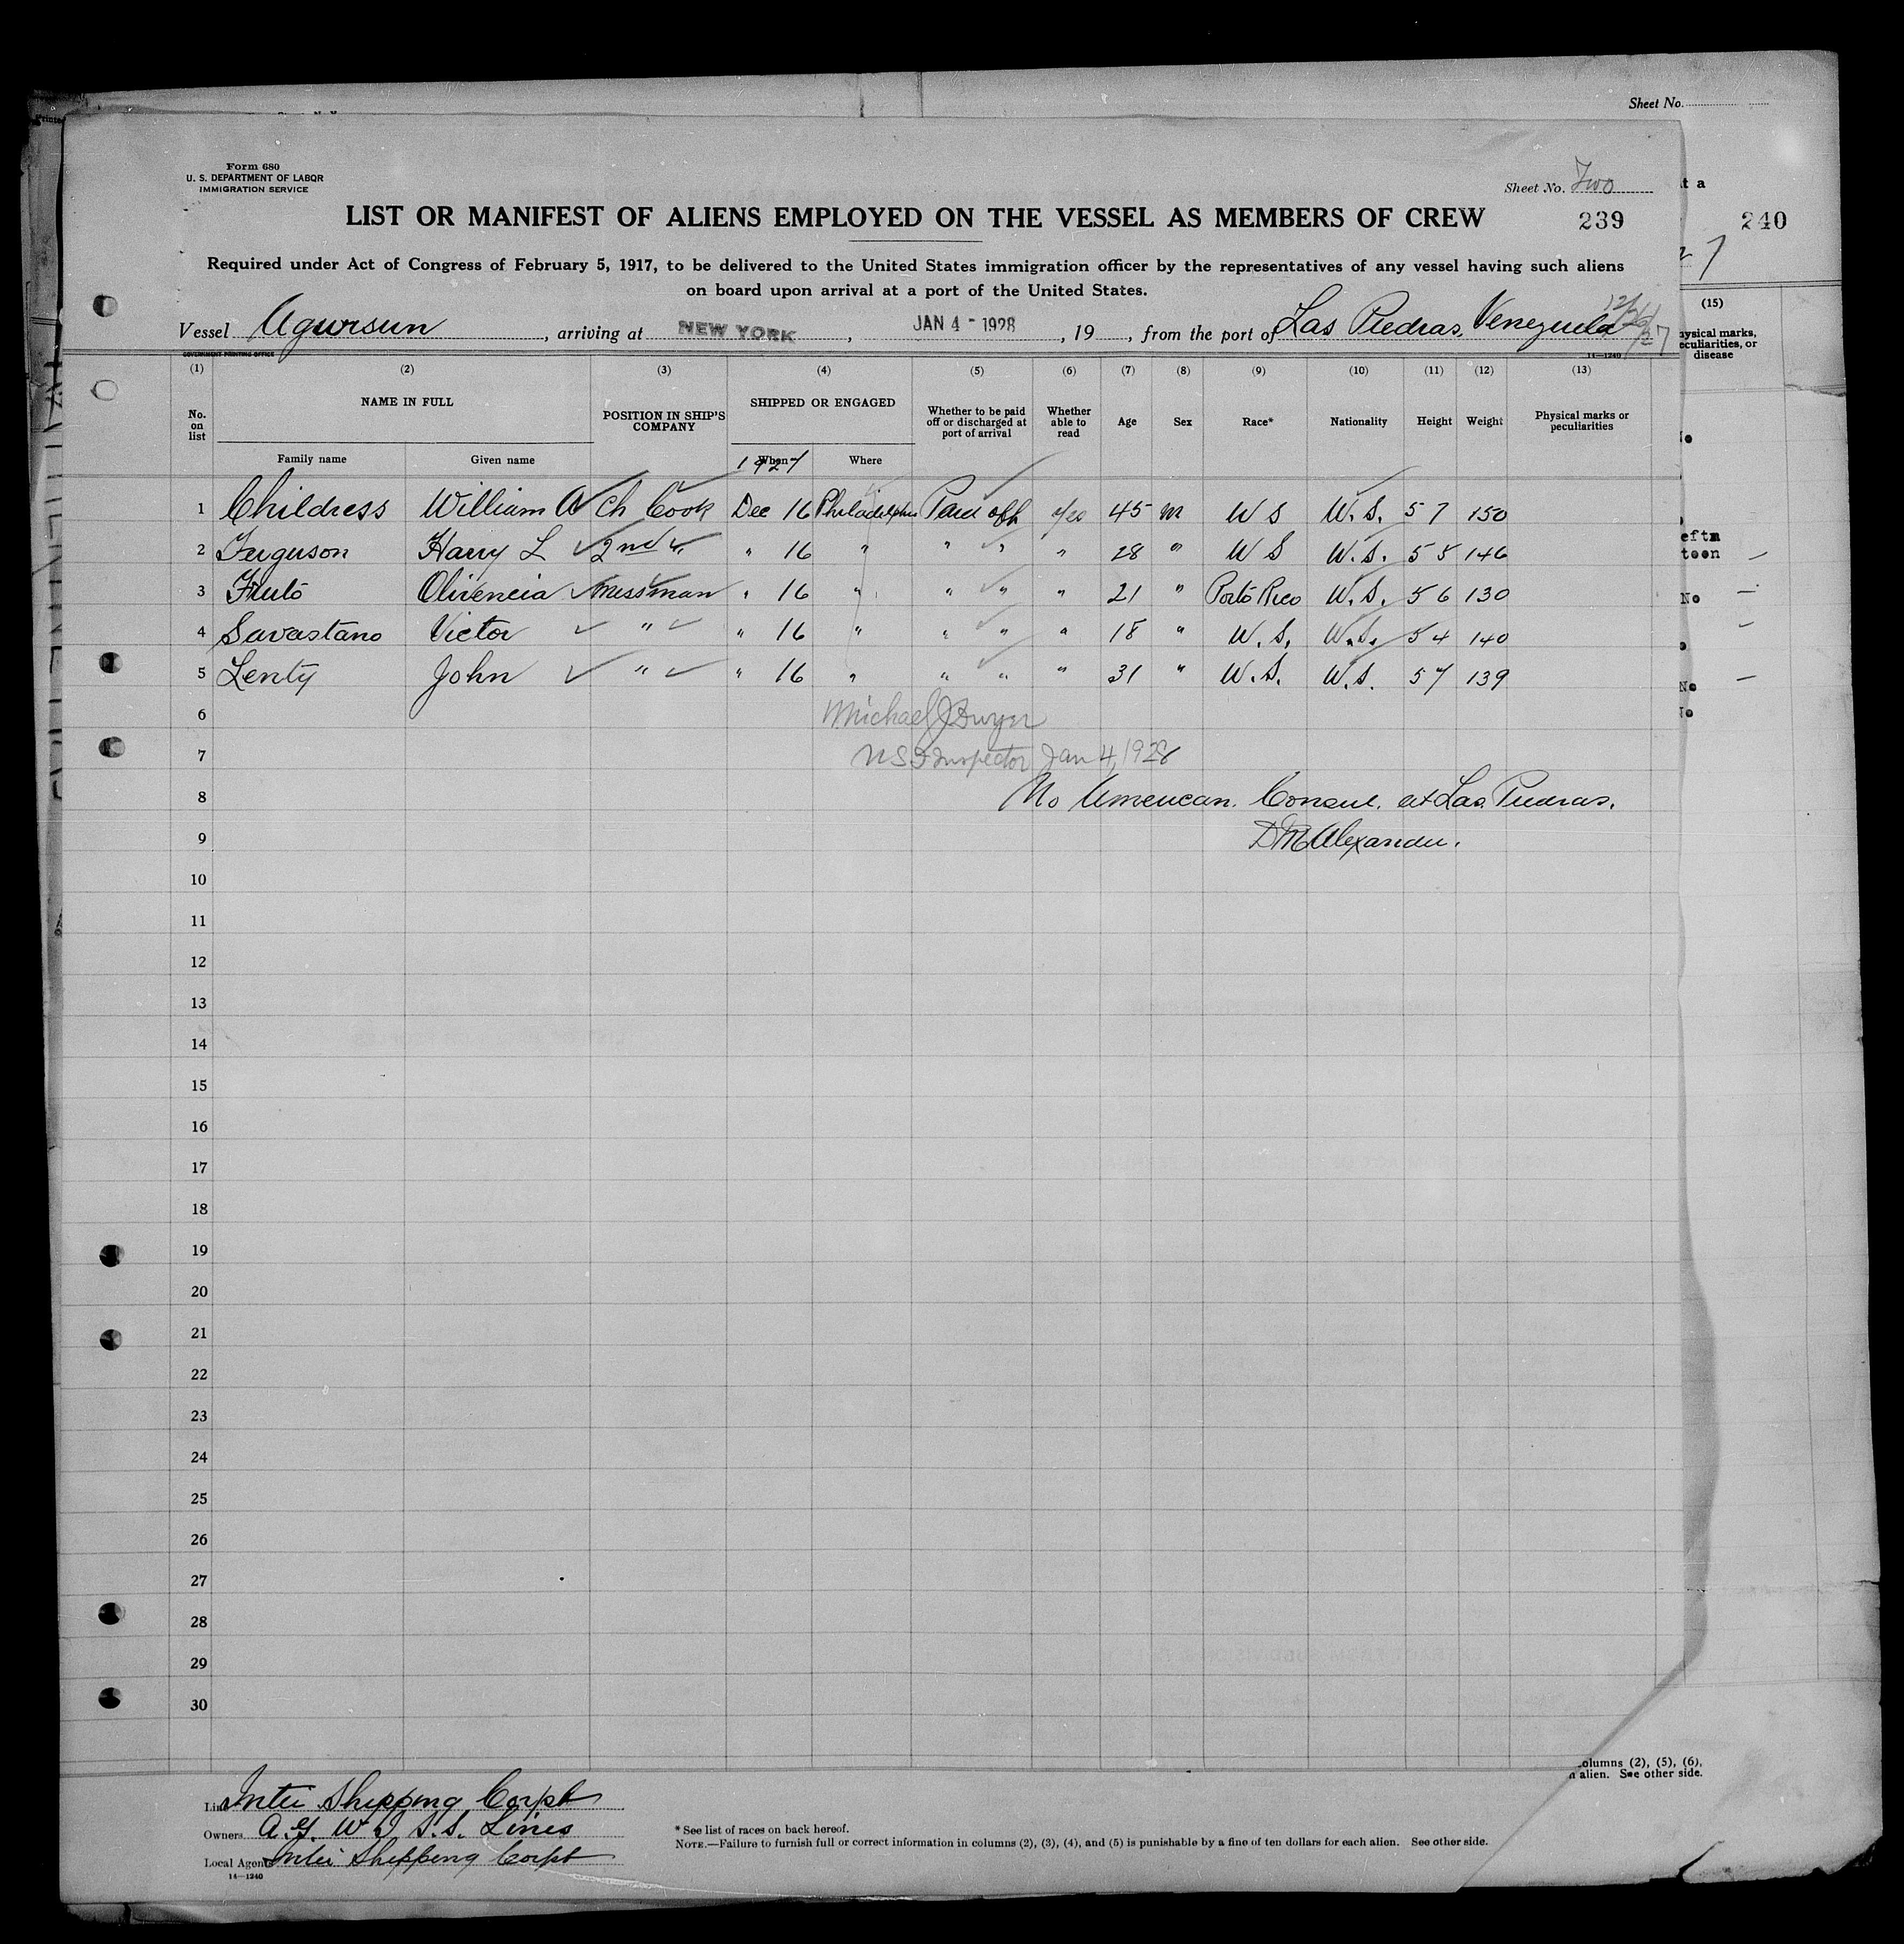 Sheet No.
Form 680
U. S. DEPARTMENT OF LABOR
IMMIGRATION SERVICE
Sheet No. Two
LIST OR MANIFEST OF ALIENS EMPLOYED ON THE VESSEL AS MEMBERS OF CREW
239
240
Required under Act of Congress of February 5, 1917, to be delivered to the United States immigration officer by the representatives of any vessel having such aliens
on board upon arrival at a port of the United States.
Vessel Agwisun, arriving at NEW YORK, JAN 4 - 1928, 19, from the port of Las Piedras, Venezuela 12/26/27
GOVERNMENT PRINTING OFFICE
14—1240
(1) (2) (3) (4) (5) (6) (7) (8) (9) (10) (11) (12) (13)
No. on list
NAME IN FULL
Family name
Given name
POSITION IN SHIP'S COMPANY
SHIPPED OR ENGAGED
When 1927
Where
Whether to be paid off or discharged at port of arrival
Whether able to read
Age
Sex
Race*
Nationality
Height
Weight
Physical marks or peculiarities
(15)
physical marks, peculiarities, or disease
1 Childress William A Ch Cook Dec 16 Philadelphia Paid off yes 45 M U S U. S. 5 7 150
2 Ferguson Harry L 2nd " " 16 " " " " 28 " U S U. S. 5 5 146
3 Fruto Olivencia Messman " 16 " " " " 21 " Porto Rico U. S. 5 6 130
4 Savastano Victor " " 16 " " " " 18 " U. S. U. S. 5 4 140
5 Lenty John " " 16 " " " " 31 " U. S. U. S. 5 7 139
6 Michael J Dwyer
7 U S I Inspector Jan 4, 1928
8 No American Consul at Las Piedras.
9 D M Alexander.
10
11
12
13
14
15
16
17
18
19
20
21
22
23
24
25
26
27
28
29
30
columns (2), (5), (6),
alien. See other side.
Line Inter Shipping Corpt
Owners A. G. W I S. S. Lines
Local Agents Inter Shipping Corpt
14—1240
* See list of races on back hereof.
NOTE.—Failure to furnish full or correct information in columns (2), (3), (4), and (5) is punishable by a fine of ten dollars for each alien. See other side.